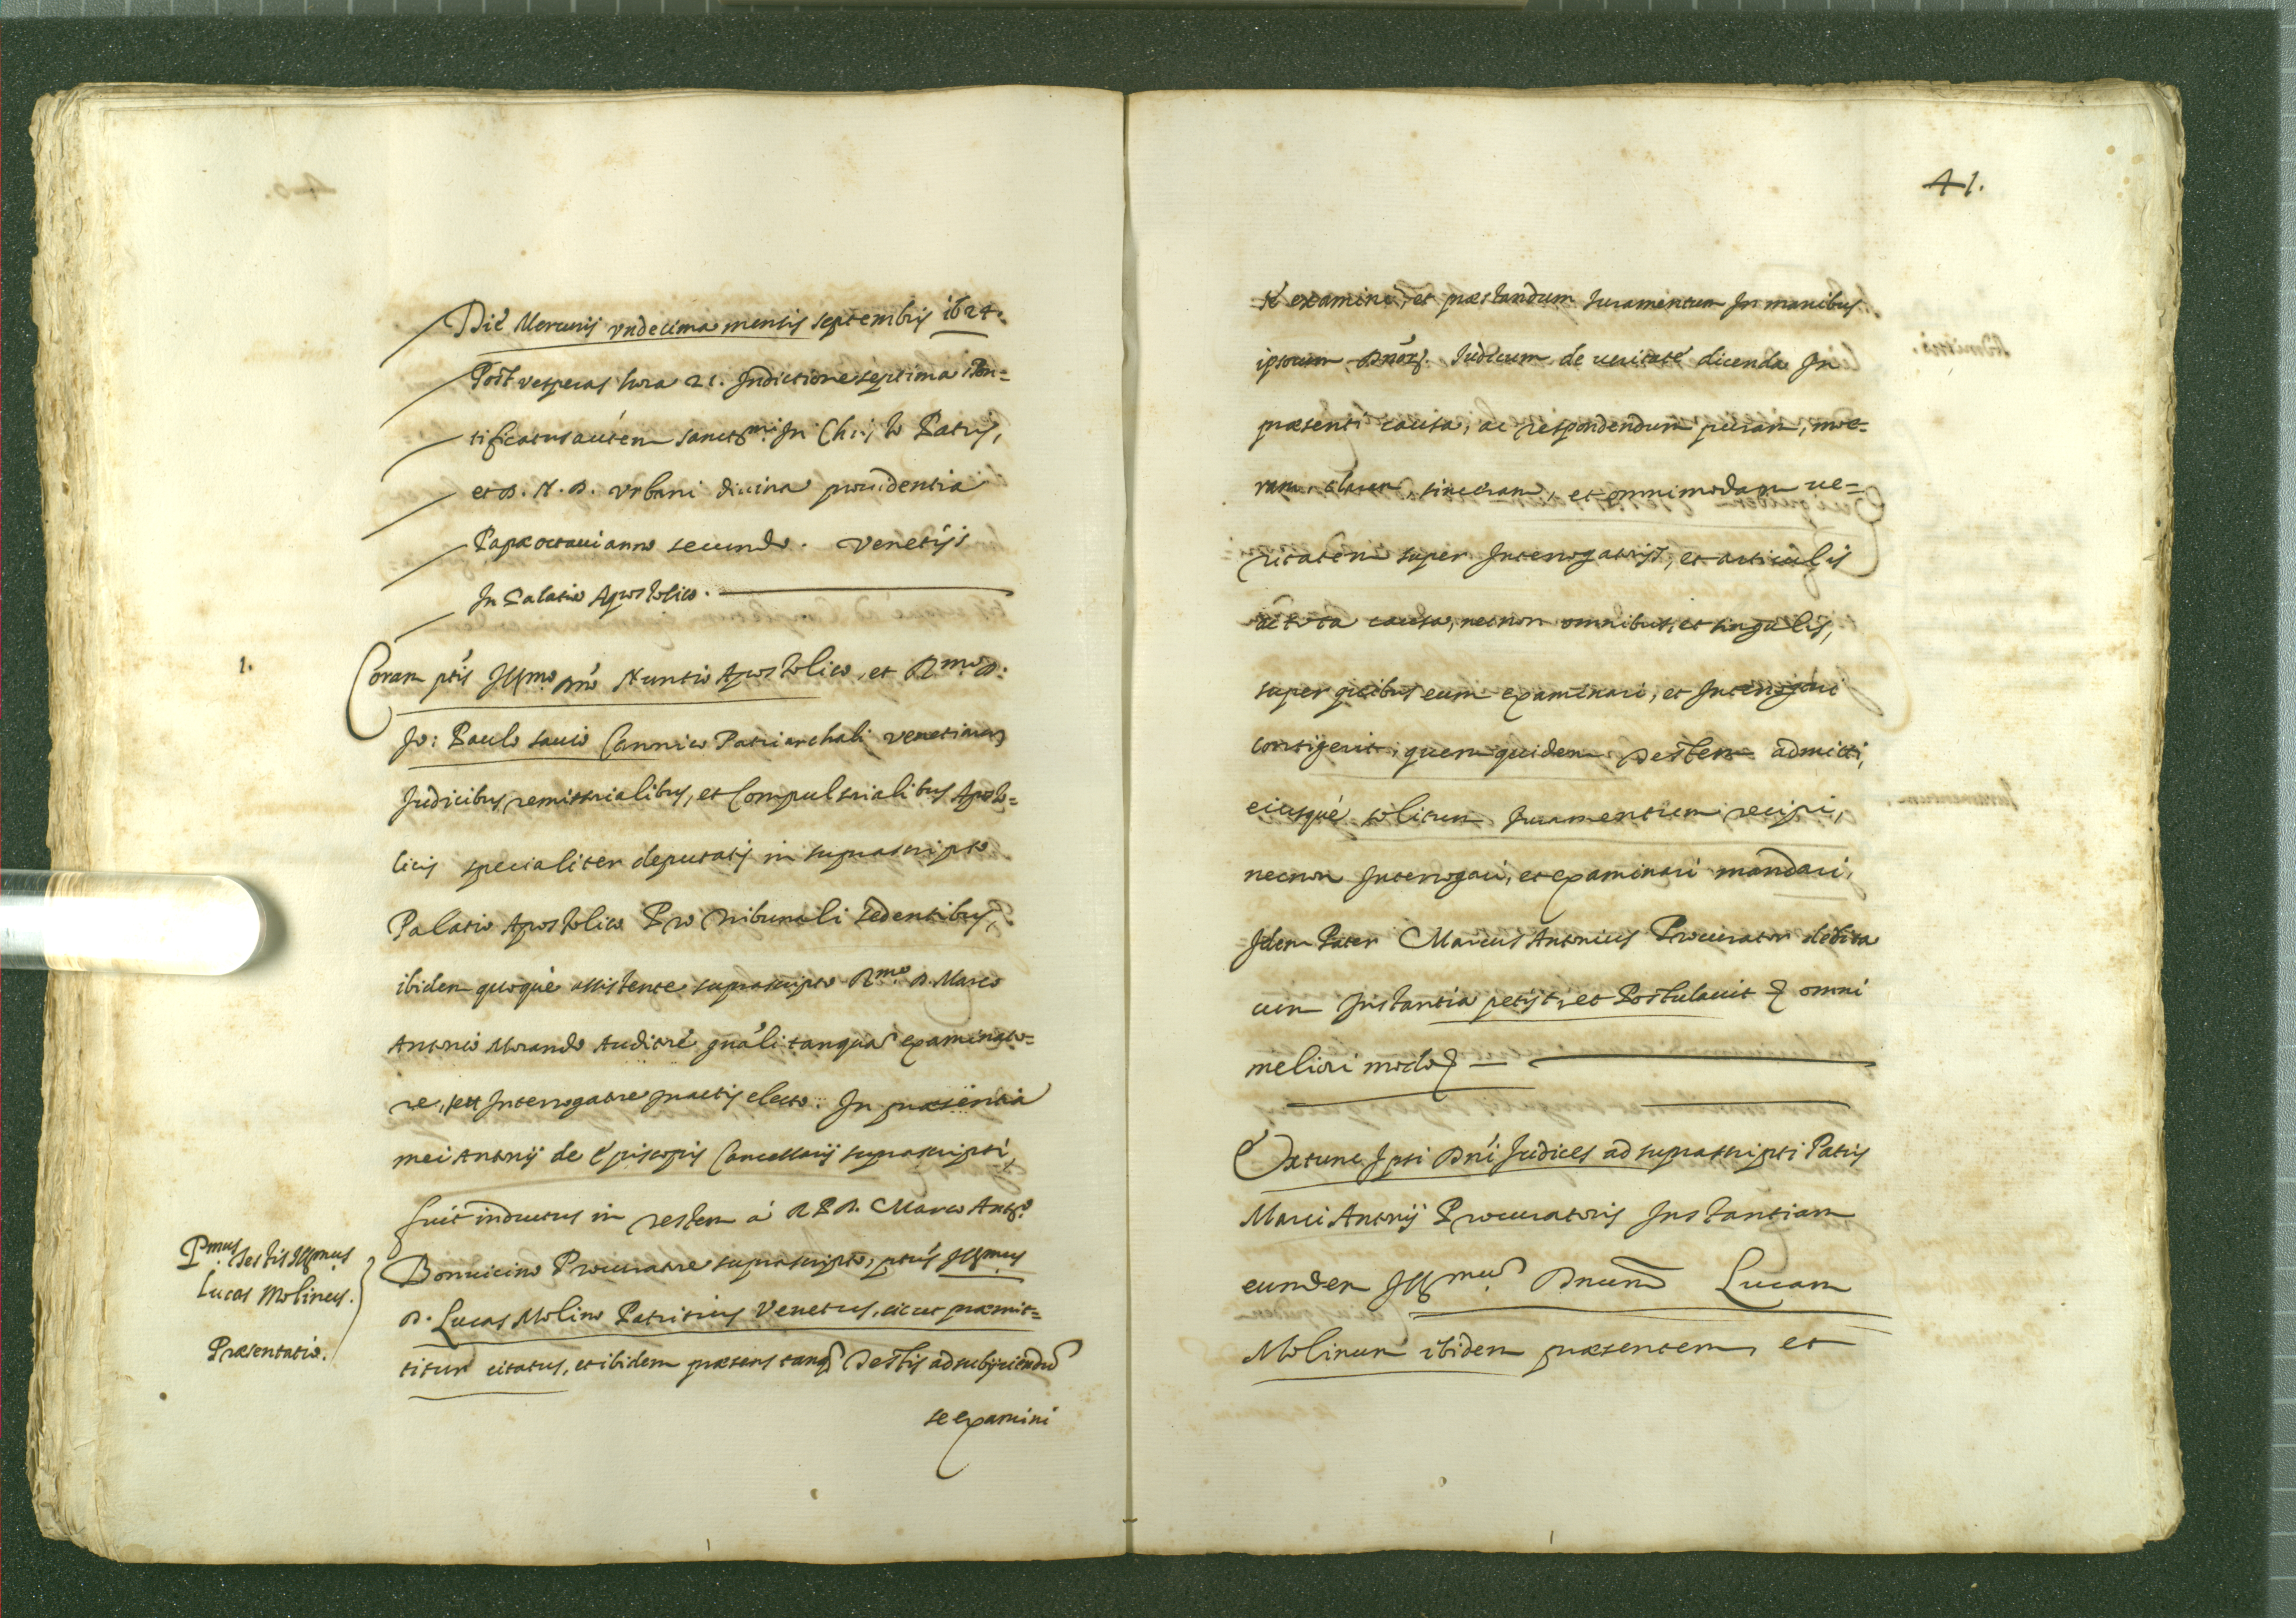 Die Mercurij vndecima mensis septembris 1624.
Post vesperas hora 21. Indictione septima Pon=
tificatus autem sanctmi In Christo Patris,
et D. N. D. Vrbani diuina prouidentia
Papæ octaui anno secundo. Venetijs
In Palatio Apostolico.
1.
Coram ptis Illmo Dno Nuntio Apostolico, et Rmo D.
Jo: Paulo sauio Canonico Patriarchali venetiarum
Judicibus remissorialibus, et Compulsorialibus Aposto=
licis specialiter deputatis in suprascripto
Palatio Apostolico Pro Tribunali sedentibus,
ibidem quoque assistente suprascripto Rmo D. Marco
Antonio Morando Auditore gnali tanquam examinato=
re, seu Interrogatore In actis electo. In præsentia
mei Antonij de Episcopis Cancellarij suprascripti,
fuit inductus in testem à R P D. Marco Anto
Bonuicino Procuratore suprascripto, ptus Illmus
D. Lucas Molino Patritius Venetus, sicut præmit=
titur citatus, et ibidem præsens tanq testis ad subijciendum
se examini
Pmus testis Illmus
Lucas Molinus.
Præsentatio.
41.
se examini, et præstandum Iuramentum In manibus
ipsorum Dnor. Iudicum de ueritate dicenda In
præsenti causa, ac respondendum puram, me=
ram, claram, sinceram, et omnimodam ue=
ritatem super Interrogatorijs, et articulis
de tota causa, necnon omnibus, et singulis,
super quibus eum examinari, et Interrogari
contigerit, quem quidem testem admitti,
eiusque solitum Iuramentum recipi,
necnon Interrogari, et examinari mandari,
Idem Pater Marcus Antonius Procurator debita
cum Instantia petijt, et Postulauit & omni
meliori modo &
Extunc Ipsi Dni Iudices ad suprascripti Patris
Marci Antonij Procuratoris Instantiam
eundem Illmum Dnum Lucam
Molinum ibidem præsentem, et